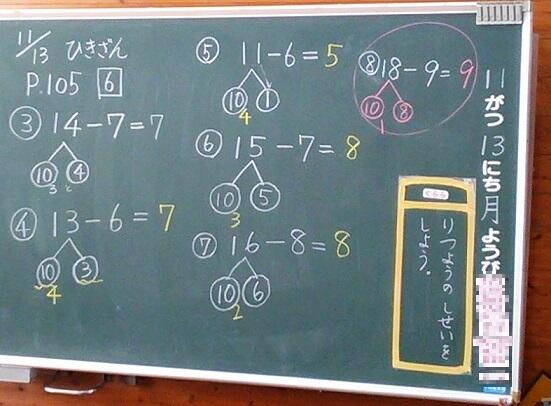 11/13 ひきざん
P.105 6
③ 14-7=7
10 4
3 と
④ 13-6=7
10 3
4
⑤ 11-6=5
10 1
4
⑥ 15-7=8
10 5
3
⑦ 16-8=8
10 6
2
⑧ 18-9=9
10 8
1
11がつ13にち月ようび
りつようのしせいを
しよう。